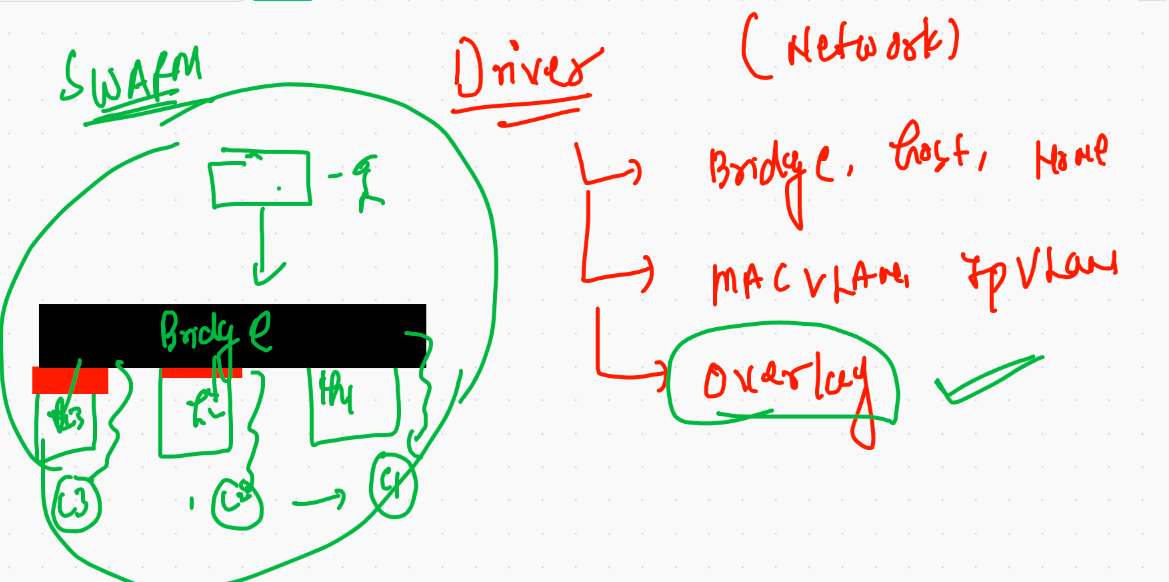 SWARM
Driver (Network)
Bridge, host, None
MACVLAN, IpVLan
Overlay
Bridge
C3
C2
C1